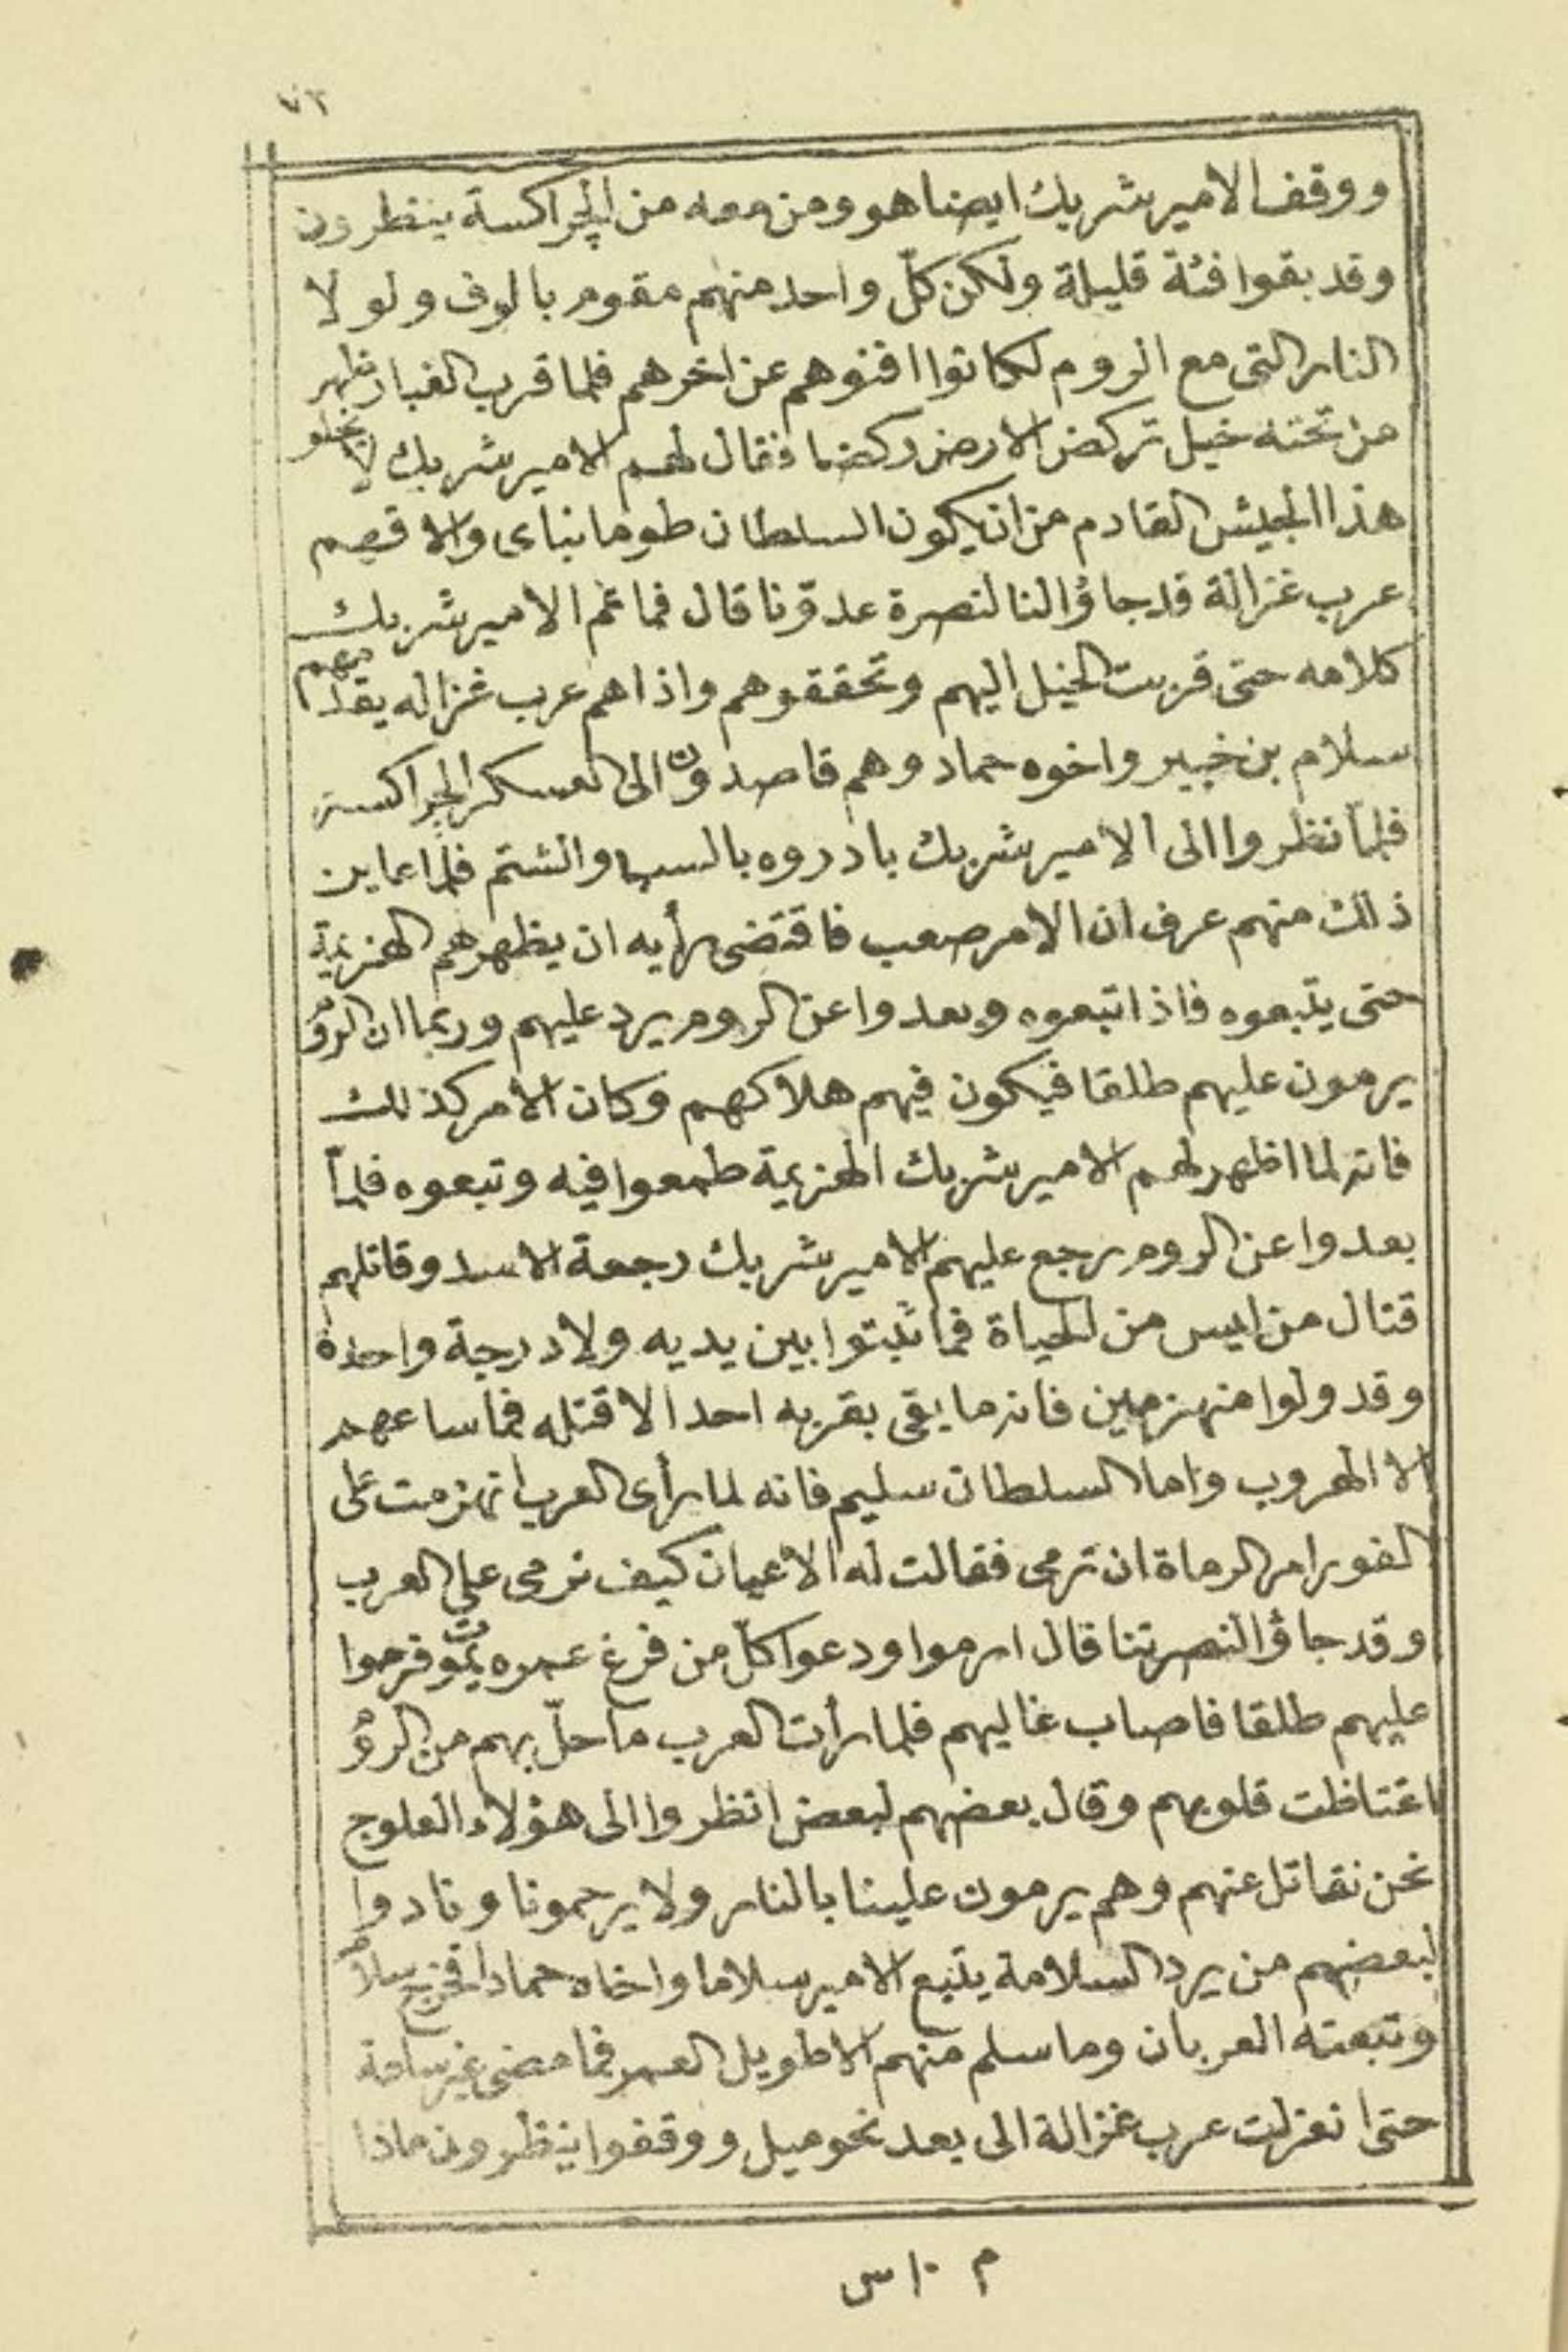 ٧٣
ووقف الامير شربك ايضا هو ومن معه من الجراكسة ينظرون
وقد بقوا فئة قليلة ولكن كلّ واحد منهم مقوم بالوف ولولا
النار التى مع الروم لكانوا افنوهم عن اخرهم فلما قرب الغبار ظهر
من تحته خيل تركض الارض ركضا فقال لهم الامير شربك لا يخلو
هذا الجيش القادم من ان يكون السلطان طومانباى والا فهم
عرب غزالة قد جاؤا لنا لنصرة عدوّنا قال فما تم الامير شربك
كلامه حتى قربت الخيل اليهم وتحققوهم واذا هم عرب غزاله يقدمهم
سلام بن خبير واخوه حماد وهم قاصدون الى العسكر الجراكسة
فلمّا نظروا الى الامير شربك بادروه بالسب والشتم فلمّا عاين
ذلك منهم عرف ان الامر صعب فاقتضى رأيه ان يظهر هم الهزيمة
حتى يتبعوه فاذا تبعوه وبعدوا عن الروم يرد عليهم وربما ان الروم
يرمون عليهم طلقا فيكون فيهم هلاكهم وكان الامر كذلك
فانه لما اظهر لهم الامير شربك الهزيمة طمعوا فيه وتبعوه فلمّا
بعدوا عن الروم رجع عليهم الامير شربك رجعة الاسد وقاتلهم
قتال من ايس من الحياة فما ثبتوا بين يديه ولا درجة واحدة
وقد ولوا منهزمين فانه ما بقى بقربه احد الا قتله فما ساعهم
الا الهروب واما السلطان سليم فانه لما رأى العرب انهزمت على
الفور امر الرماة ان ترمى فقالت له الاعيان كيف نرمى على العرب
وقد جاؤا لنصرتنا قال ارموا ودعوا كلّ من فرغ عمره يموت فرموا
عليهم طلقا فاصاب غاليهم فلما رأت العرب ما حلّ بهم من الروم
اغتاظت قلوبهم وقال بعضهم لبعض انظروا الى هؤلاء العلوج
نحن نقاتل عنهم وهم يرمون علينا بالنار ولا يرحمونا ونادوا
لبعضهم من يرد السلامة يتبع الامير سلاما واخاه حمادا فخرج سلام
وتبعته العربان وما سلم منهم الا طويل العمر فما مضى غير ساعة
حتى انعزلت عرب غزالة الى بعد نحو ميل ووقفوا ينظرون ماذا
م ١٠ س